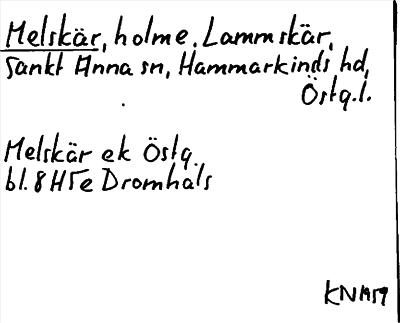 Melskär, holme, Lammskär,
Sankt Anna sn, Hammarkinds hd,
Östg.l.
Melskär ek Östg.
bl. 8H5e Dromhals
KN 1959